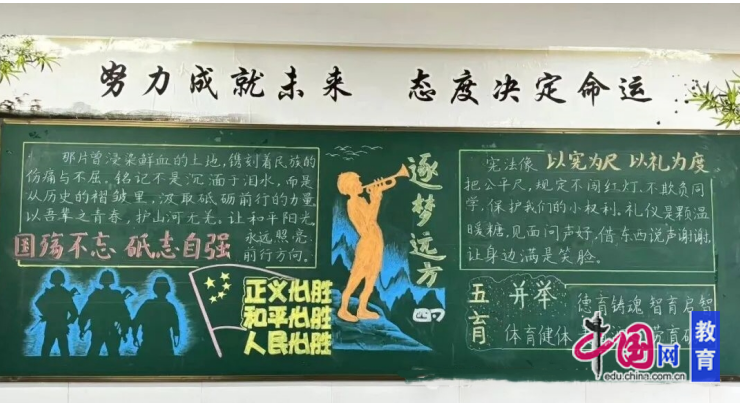 努力成就未来 态度决定命运
那片曾浸染鲜血的土地，镌刻着民族的
伤痛与不屈。铭记不是沉湎于泪水，而是
从历史的褶皱里，汲取砥砺前行的力量
以吾辈之青春，护山河无恙。让和平阳光
永远照亮
前行方向。
国殇不忘 砥志自强
正义必胜
和平必胜
人民必胜
逐梦远方
宪法像 以宪为尺 以礼为度
把公平尺，规定不闯红灯，不欺负同
学，保护我们的小权利。礼仪是颗温
暖糖，见面问声好，借东西说声谢谢，
让身边满是笑脸。
五育 并举
德育铸魂 智育启智
体育健体
中国网 教育
edu.china.com.cn